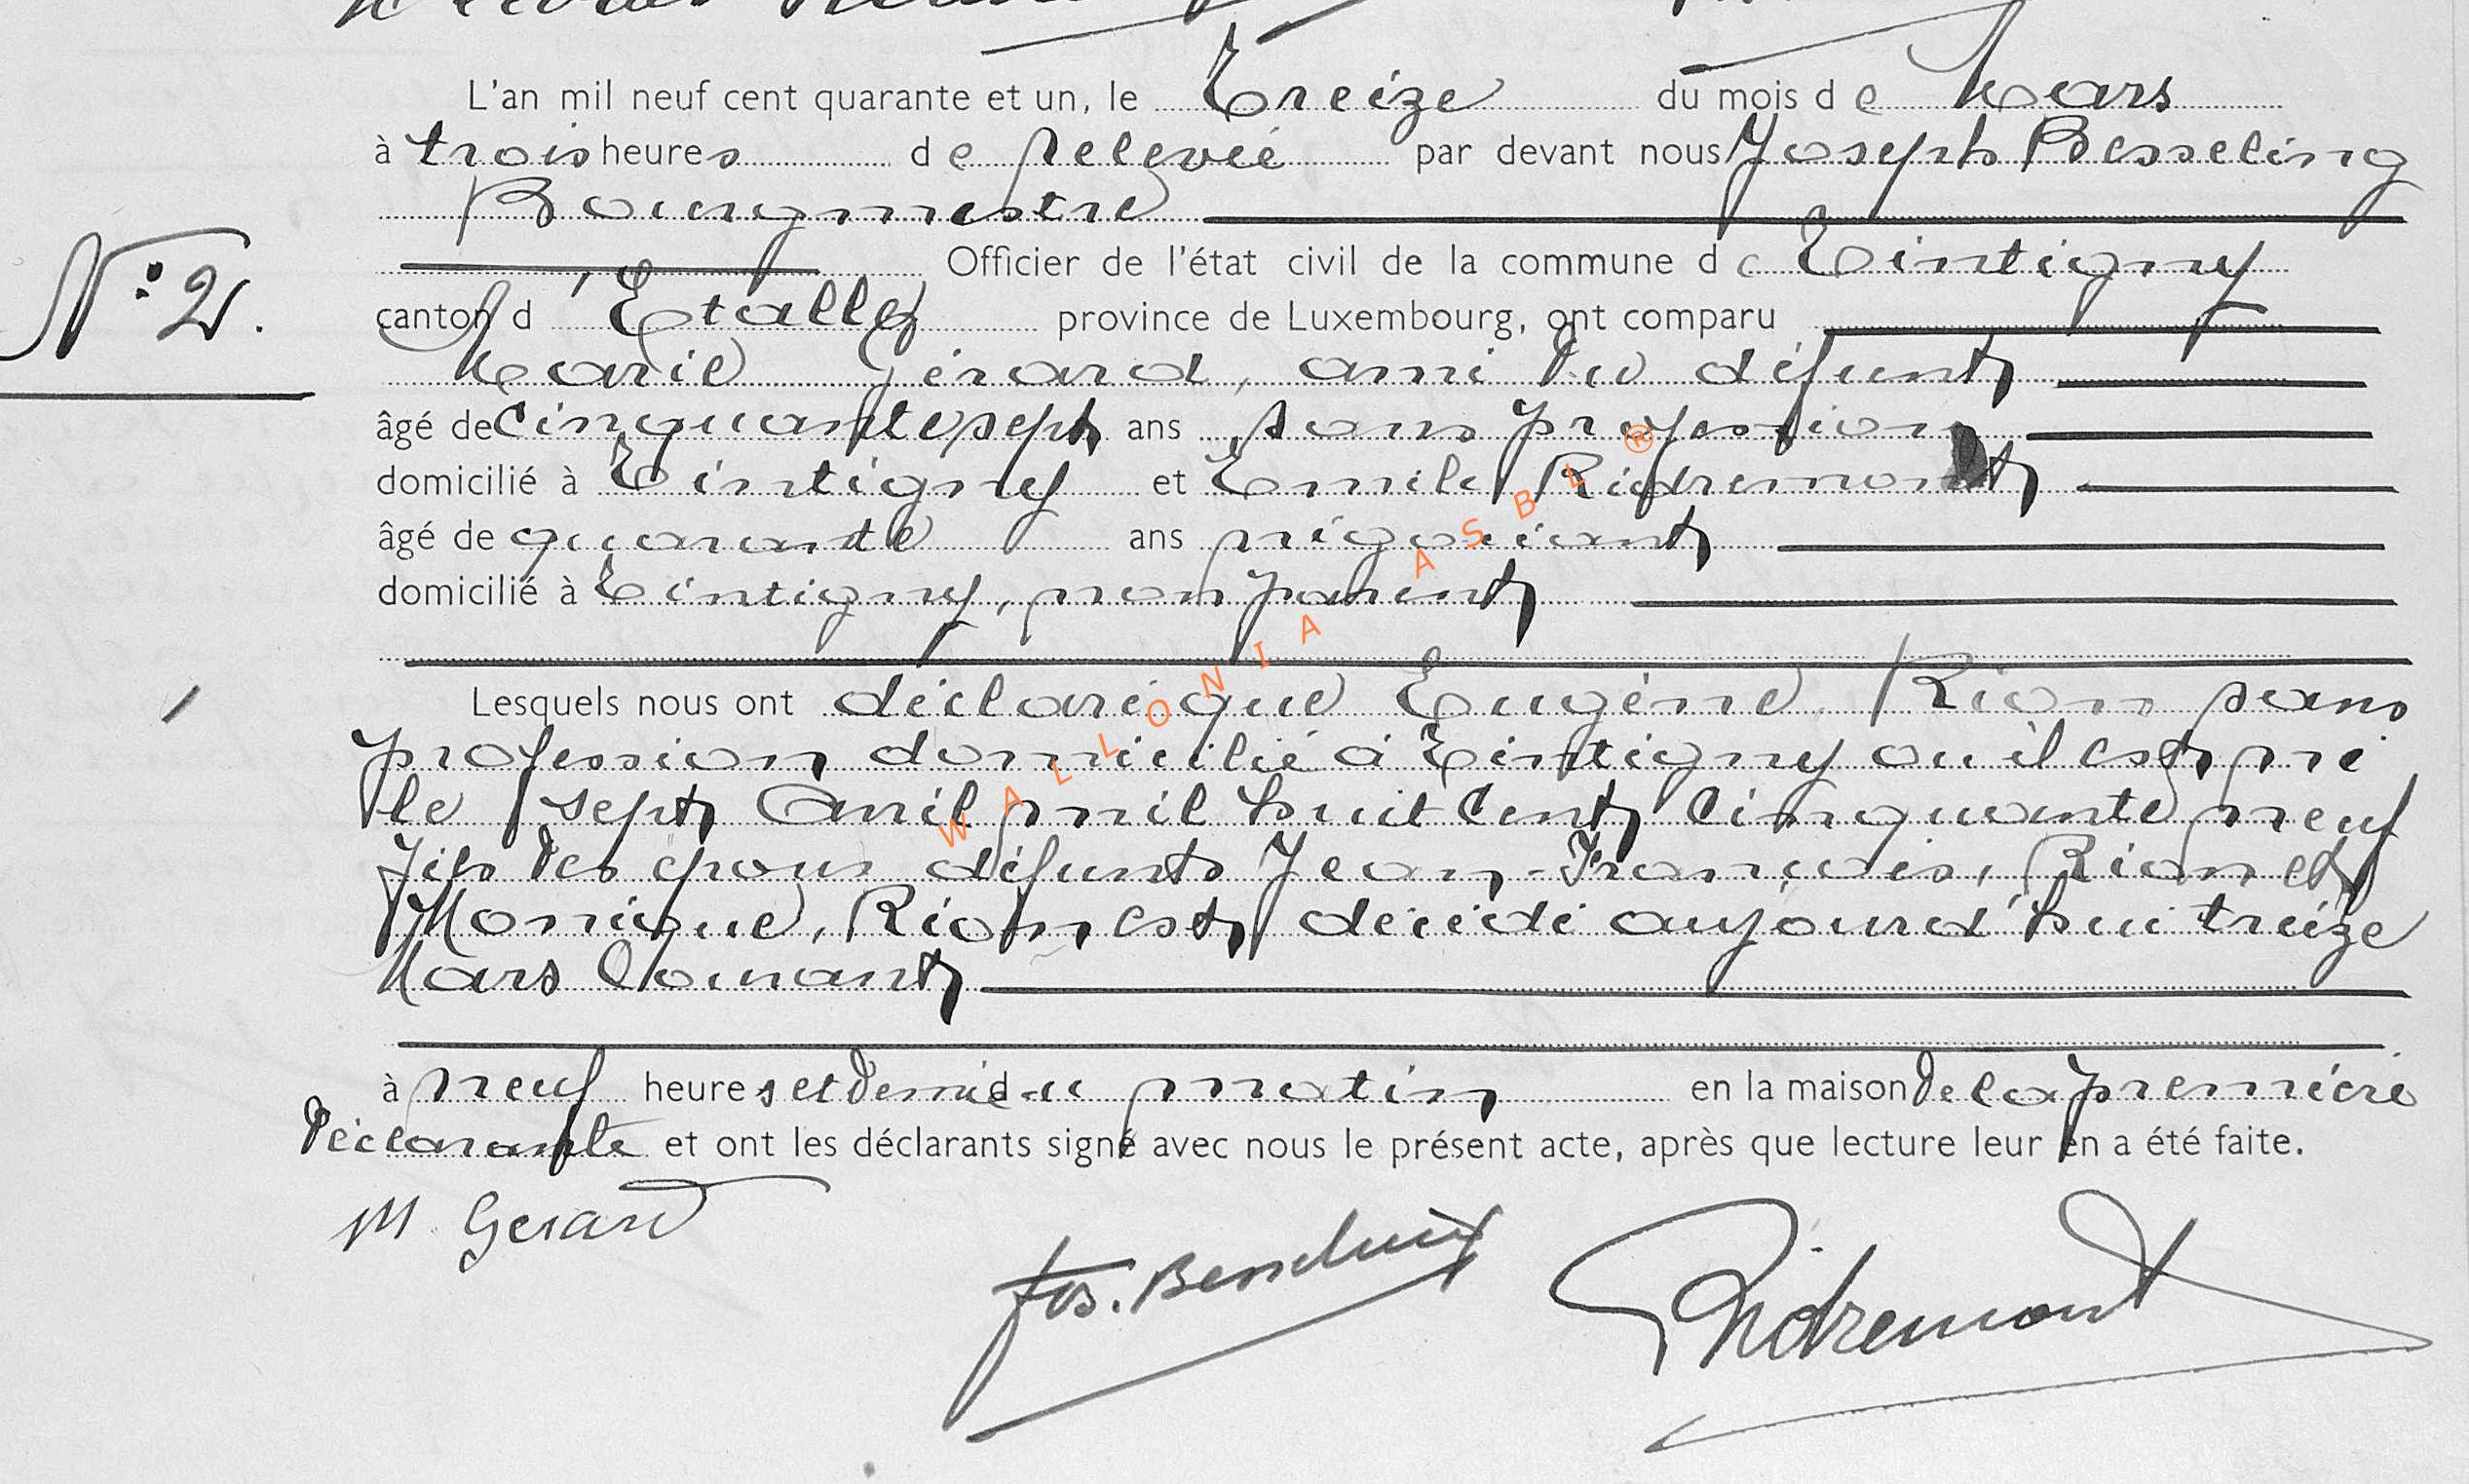 L'an mil neuf cent quarante et un, le Treize du mois de Mars
à trois heures de relevée par devant nous Joseph Besseling
Bourgmestre
Officier de l'état civil de la commune de Tintigny
N° 2.
canton d'Etalle, province de Luxembourg, ont comparu
Marie Gérard, ami du défunt
âgé de Cinquante sept ans, sans profession
domicilié à Tintigny et Emile Ridremont
âgé de quarante ans négociant
domicilié à Tintigny, non parent
Lesquels nous ont déclaré que Eugène Rion sans
profession domicilié à Tintigny ou il est né
le sept Avril mil huit Cent Cinquante neuf
fils des épous défunts Jean-François, Rion et
Monique, Rion est décédé aujourd'hui treize
Mars Courant
à neuf heures et demie du matin en la maison de la première
déclarante et ont les déclarants signé avec nous le présent acte, après que lecture leur en a été faite.
M. Gerard
Jos. Ridremont
WALLONIA ASBL ®